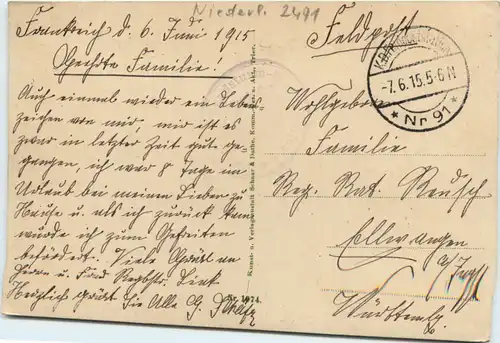 Niederl. 2491
Frankreich d. 6. Juni 1915
Geehrte Familie!
Auch einmal wieder ein Lebens
zeichen von mir, mir ist es
zwar in letzter Zeit gut ge-
gangen, ich war 8 Tage im
Urlaub bei meinen Lieben zu
Hause u. als ich zurück kam
wurde ich zum Gefreiten
befördert. Viele Grüße an
Herrn u. Frau
Herzlich grüßt Sie Alle G.
Kunst- u. Verlagsanstalt Schaar & Dathe, Komm.-Ges. a. Akt., Trier.
Nr. 1974.
Feldpost
-7.6.15.5-6N
* Nr 91 *
Wohlgeboren
Familie
Reg. Rat. Reusch
Ellwangen
a/Jagst
Württembg.